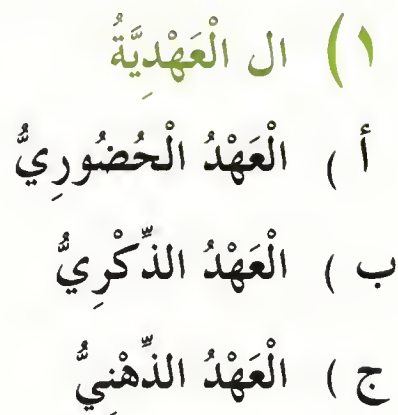 ١) ال الْعَهْدِيَّةُ
أ ) الْعَهْدُ الْحُضُورِيُّ
ب ) الْعَهْدُ الذِّكْرِيُّ
ج ) الْعَهْدُ الذِّهْنِيُّ